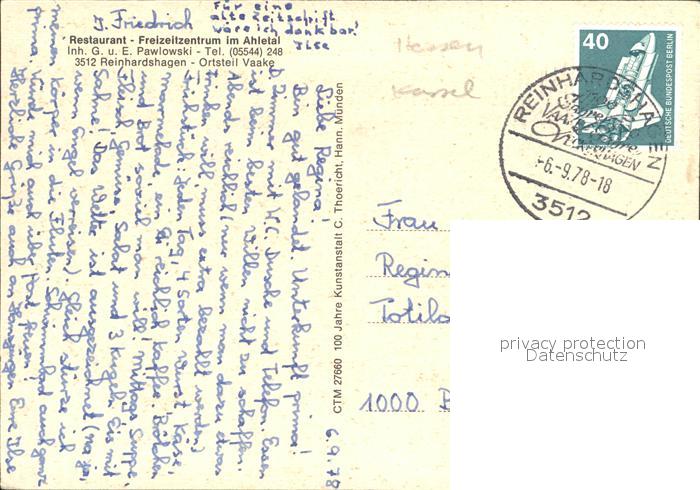 J. Friedrich
Für eine
alte Zeitschrift
wäre ich dankbar!
Ilse
Restaurant - Freizeitzentrum im Ahletal
Inh. G. u. E. Pawlowski - Tel. (05544) 248
3512 Reinhardshagen - Ortsteil Vaake
Hessen
Kassel
40
DEUTSCHE BUNDESPOST BERLIN
REINHARDSHAGEN
-6.-9.78-18
3512
6.9.78
Liebe Regina!
Bin gut gelandet. Unterkunft prima!
D. Zimmer mit W.C. Dusche und Telefon. Essen
ist beim besten Willen nicht zu schaffen.
Abend reichlich (nur wenn man dazu etwas
trinken will, muss extra bezahlt werden)
Frühstück: Jeden Tag, 4 Sorten Wurst, Käse,
Marmelade, ein Ei reichlich Kaffee, Brötchen
und Brot soviel man will. Mittags Suppe,
Fleisch, Gemüse, Salat und 3 Kugeln Eis mit
Sahne! Das Wetter ist ausgezeichnet (na ja,
wenn Engel verreisen). Gleich stürze ich
meinen Körper in die Fluten. Schwimmbad auch ganz
prima. Würde mich auch über Post freuen!
Herzliche Grüße auch an Eure Ilse
CTM 27660 100 Jahre Kunstanstalt C. Thoericht, Hann. Münden
Frau
Regin
Totila
1000 B
privacy protection
Datenschutz